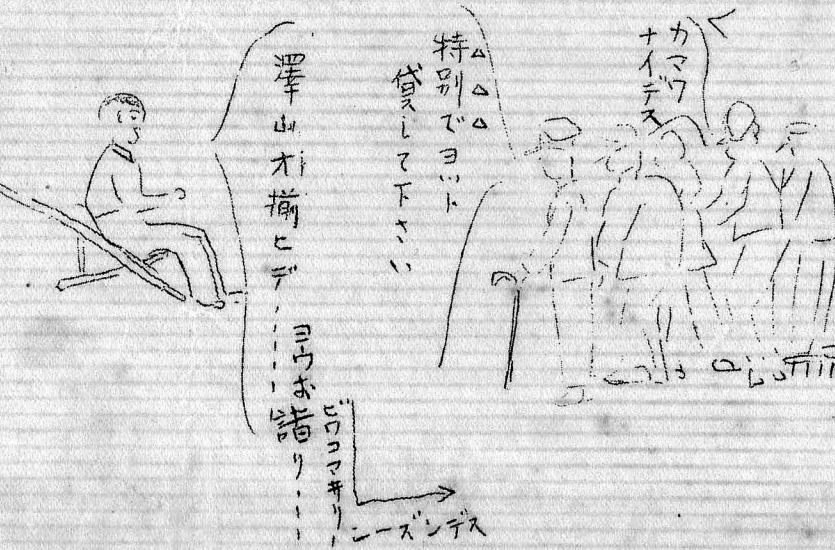 カマワ
ナイデス
特別でヨット
貸して下さい
澤山オ揃ヒデ----
ヨウお詣リ---
ビワコマヰリー
シーズンデス